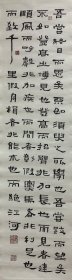 吾嘗終日而思矣不如須臾之所學也吾嘗跂而望
矣不如登高之博見也登高而招臂非加長也而見者遠
順風而呼聲非加疾也而聞者彰假輿馬者非利足也
而致千里假舟楫者非能水也而絕江河